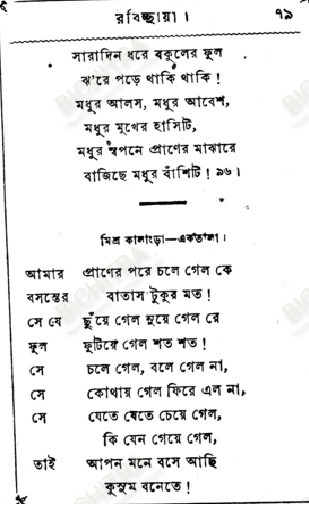 রবিচ্ছায়া। ৭৯
সারাদিন ধরে বকুলের ফুল
ঝ'রে পড়ে থাকি থাকি!
মধুর আলস, মধুর আবেশ,
মধুর মুখের হাসিটি,
মধুর স্বপনে প্রাণের মাঝারে
বাজিছে মধুর বাঁশিটি! ৯৬।
মিশ্র কালাংড়া—একতালা।
আমার প্রাণের পরে চলে গেল কে
বসন্তের বাতাস টুকুর মত!
সে যে ছুঁয়ে গেল নুয়ে গেল রে
ফুল ফুটিয়ে গেল শত শত!
সে চলে গেল, বলে গেল না,
সে কোথায় গেল ফিরে এল না,
সে যেতে যেতে চেয়ে গেল,
কি যেন গেয়ে গেল,
তাই আপন মনে বসে আছি
কুসুম বনেতে!